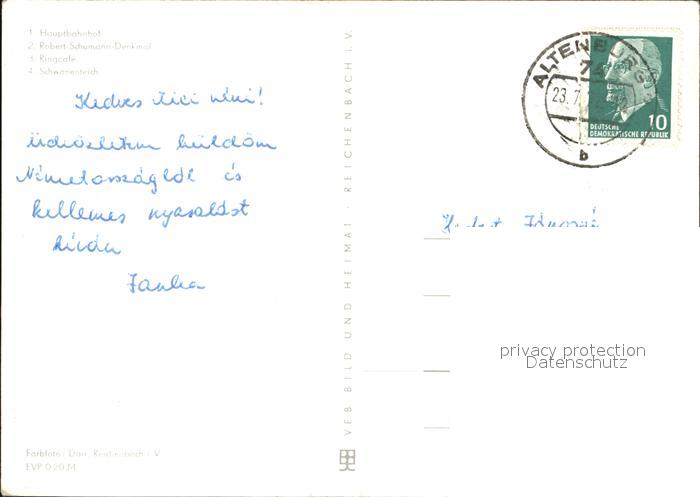 1. Hauptbahnhof
2. Robert-Schumann-Denkmal
3. Ringcafe
4. Schwanenteich
Kedves Kici néni!
Üdvözletem küldöm
Németországból és
kellemes nyaralást
kíván
Janka
Farbfoto: Darr, Reichenbach i. V.
EVP 0.20 M
VEB BILD UND HEIMAT · REICHENBACH i. V.
ALTENBURG
74
23.7.
b
10
DEUTSCHE
DEMOKRATISCHE REPUBLIK
privacy protection
Datenschutz